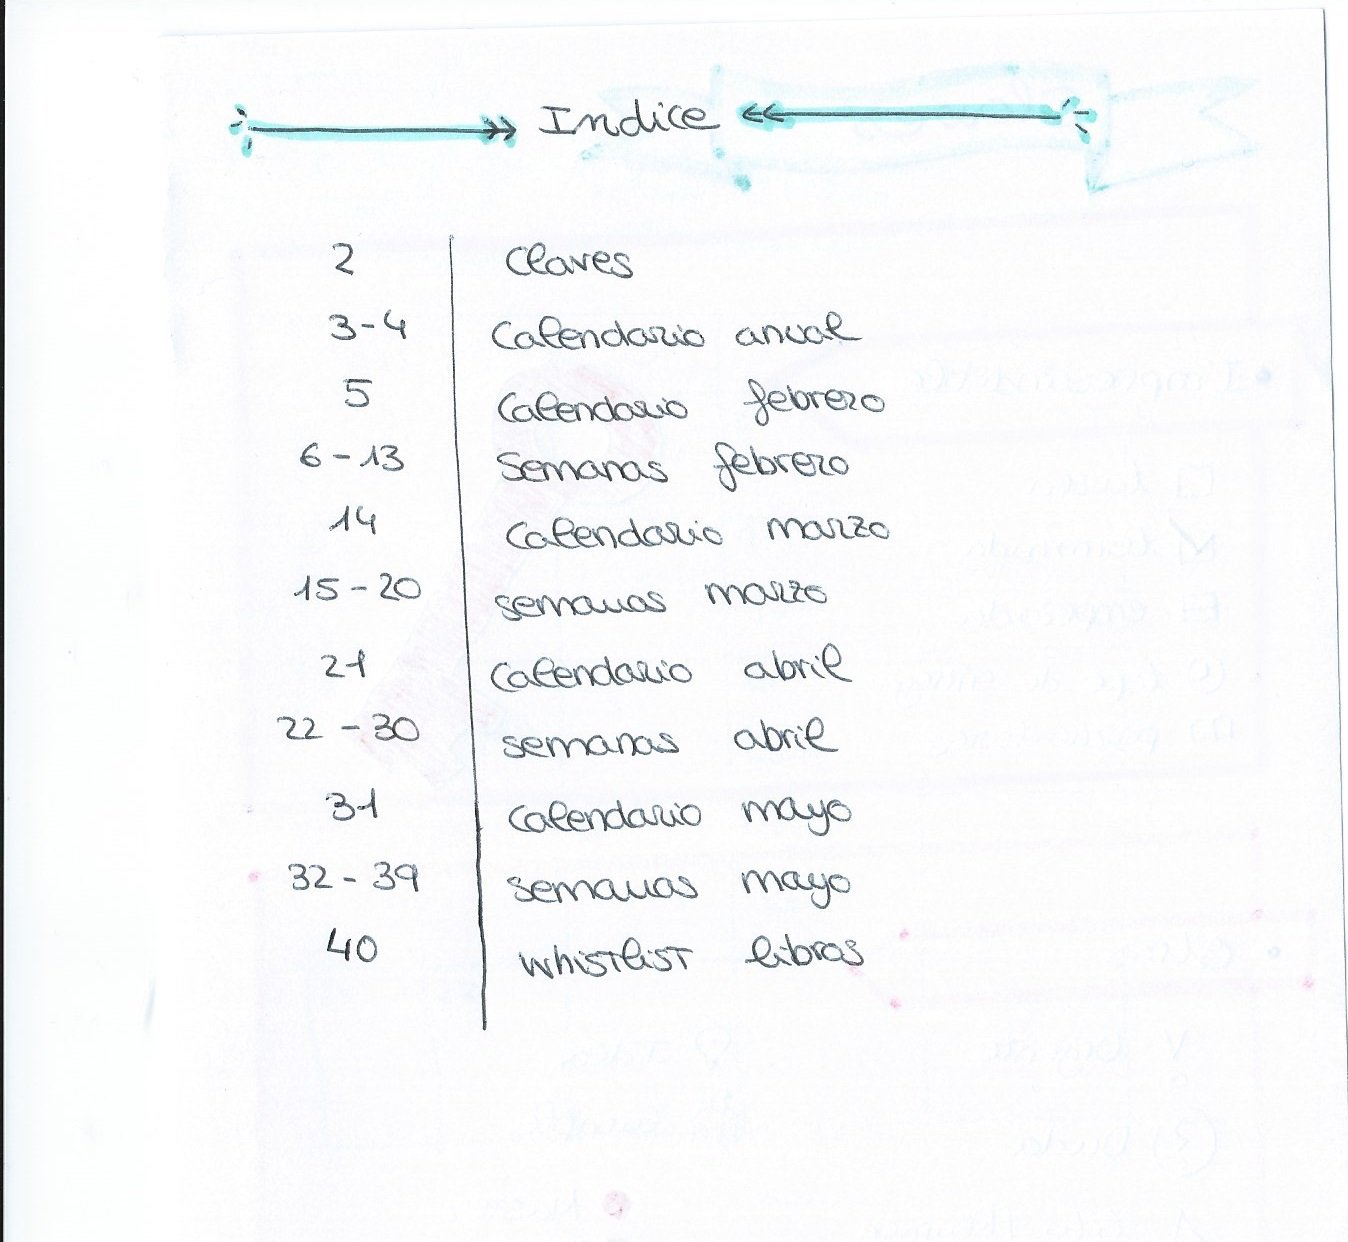 Indice
2 Claves
3-4 Calendario anual
5 Calendario febrero
6-13 Semanas febrero
14 Calendario marzo
15-20 semanas marzo
21 Calendario abril
22-30 semanas abril
31 Calendario mayo
32-39 semanas mayo
40 whistlist libros